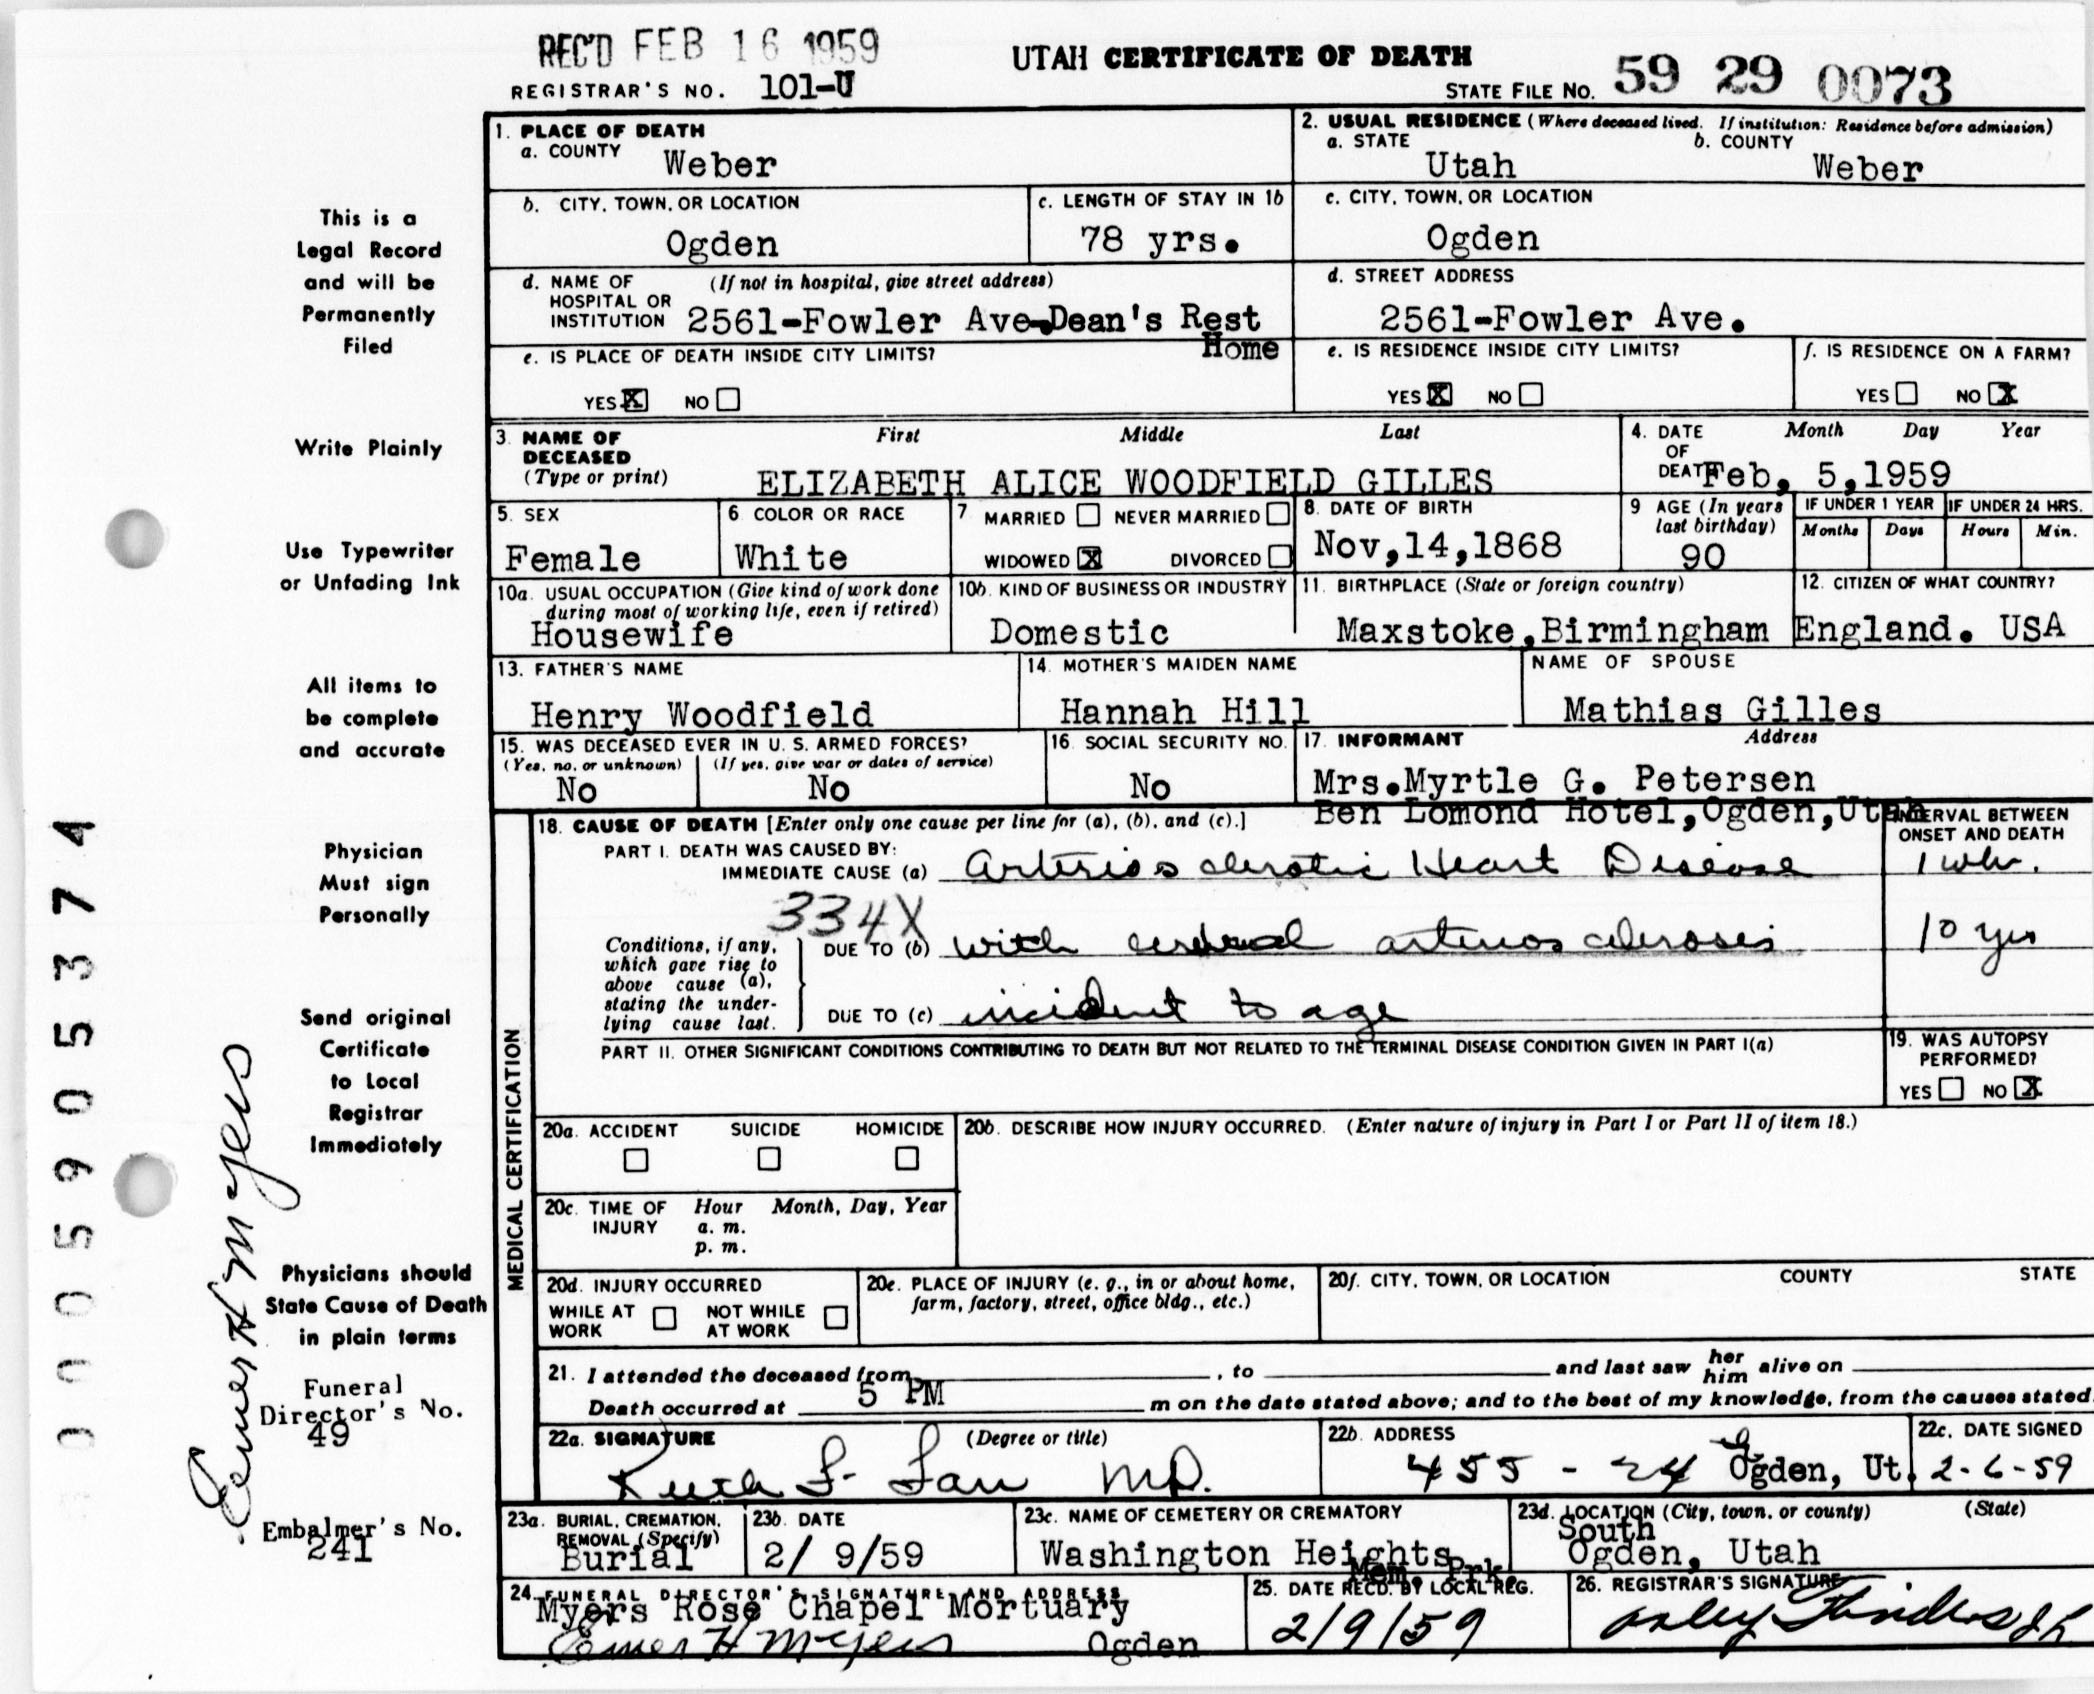 REC'D FEB 16 1959
UTAH CERTIFICATE OF DEATH
REGISTRAR'S NO. 101-U
STATE FILE NO. 59 29 0073
1. PLACE OF DEATH
a. COUNTY Weber
2. USUAL RESIDENCE (Where deceased lived. If institution: Residence before admission)
a. STATE Utah b. COUNTY Weber
b. CITY, TOWN, OR LOCATION Ogden
c. LENGTH OF STAY IN 1b 78 yrs.
c. CITY, TOWN, OR LOCATION Ogden
d. NAME OF HOSPITAL OR INSTITUTION (If not in hospital, give street address) 2561-Fowler Ave-Dean's Rest Home
d. STREET ADDRESS 2561-Fowler Ave.
e. IS PLACE OF DEATH INSIDE CITY LIMITS?
YES X NO
e. IS RESIDENCE INSIDE CITY LIMITS?
YES X NO
f. IS RESIDENCE ON A FARM?
YES NO X
3. NAME OF DECEASED (Type or print) First Middle Last
ELIZABETH ALICE WOODFIELD GILLES
4. DATE OF DEATH Month Day Year
Feb, 5,1959
5. SEX Female
6. COLOR OR RACE White
7 MARRIED NEVER MARRIED
WIDOWED X DIVORCED
8. DATE OF BIRTH Nov,14,1868
9 AGE (In years last birthday) 90
IF UNDER 1 YEAR Months Days
IF UNDER 24 HRS. Hours Min.
10a. USUAL OCCUPATION (Give kind of work done during most of working life, even if retired)
Housewife
10b. KIND OF BUSINESS OR INDUSTRY
Domestic
11. BIRTHPLACE (State or foreign country)
Maxstoke,Birmingham England.
12. CITIZEN OF WHAT COUNTRY?
USA
13. FATHER'S NAME
Henry Woodfield
14. MOTHER'S MAIDEN NAME
Hannah Hill
NAME OF SPOUSE
Mathias Gilles
15. WAS DECEASED EVER IN U. S. ARMED FORCES?
(Yes, no, or unknown) (If yes, give war or dates of service)
No No
16. SOCIAL SECURITY NO.
No
17. INFORMANT Address
Mrs.Myrtle G. Petersen
Ben Lomond Hotel,Ogden,Utah
MEDICAL CERTIFICATION
18. CAUSE OF DEATH [Enter only one cause per line for (a), (b), and (c).]
INTERVAL BETWEEN ONSET AND DEATH
PART I. DEATH WAS CAUSED BY:
IMMEDIATE CAUSE (a) Arteriosclerotic Heart Disease
334X
Conditions, if any, which gave rise to above cause (a), stating the underlying cause last.
DUE TO (b) with cerebral arteriosclerosis 10 yrs
DUE TO (c) incident to age
PART II. OTHER SIGNIFICANT CONDITIONS CONTRIBUTING TO DEATH BUT NOT RELATED TO THE TERMINAL DISEASE CONDITION GIVEN IN PART I(a)
19. WAS AUTOPSY PERFORMED?
YES NO X
20a. ACCIDENT SUICIDE HOMICIDE
20b. DESCRIBE HOW INJURY OCCURRED. (Enter nature of injury in Part I or Part II of item 18.)
20c. TIME OF INJURY Hour Month, Day, Year
a. m.
p. m.
20d. INJURY OCCURRED
WHILE AT WORK NOT WHILE AT WORK
20e. PLACE OF INJURY (e. g., in or about home, farm, factory, street, office bldg., etc.)
20f. CITY, TOWN, OR LOCATION COUNTY STATE
21. I attended the deceased from , to and last saw her him alive on
Death occurred at 5 PM m on the date stated above; and to the best of my knowledge, from the causes stated.
22a. SIGNATURE (Degree or title)
MD.
22b. ADDRESS
455 - 24 Ogden, Ut.
22c. DATE SIGNED
2-6-59
23a. BURIAL, CREMATION, REMOVAL (Specify)
Burial
23b. DATE
2/ 9/59
23c. NAME OF CEMETERY OR CREMATORY
Washington Heights Mem. Prk.
23d. LOCATION (City, town, or county) (State)
South Ogden, Utah
24. FUNERAL DIRECTOR'S SIGNATURE AND ADDRESS
Myers Rose Chapel Mortuary
Elmer H Myers Ogden
25. DATE RECD. BY LOCAL REG.
2/9/59
26. REGISTRAR'S SIGNATURE
This is a
Legal Record
and will be
Permanently
Filed
Write Plainly
Use Typewriter
or Unfading Ink
All items to
be complete
and accurate
Physician
Must sign
Personally
Send original
Certificate
to Local
Registrar
Immediately
Physicians should
State Cause of Death
in plain terms
Funeral
Director's No.
49
Embalmer's No.
241
Elmer H Myers
0005905374